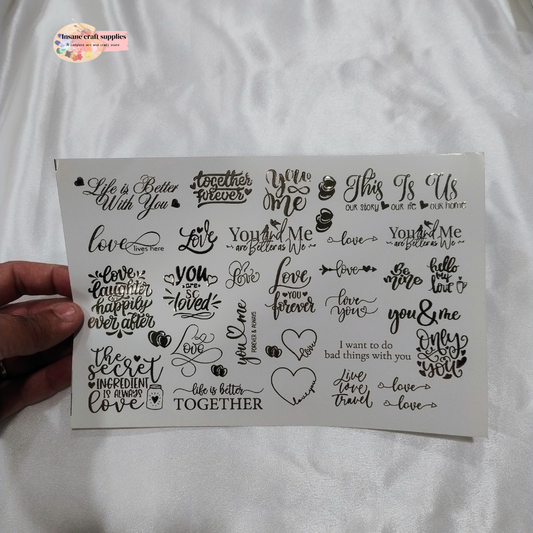 Insane craft supplies
Life is Better
With You
together
forever
You
&
Me
This Is Us
our story our life our home
love
lives here
Love
You And Me
are Better as We
love
You And Me
are Better as We
love
laughter
&
happily
ever after
you
are
so
loved
Love
Love
YOU
forever
love
Be
mine
hello
my
love
love
you
you & me
Love
you me
FOREVER & ALWAYS
love
I want to do
bad things with you
Only
you
The
secret
INGREDIENT
IS ALWAYS
love
life is better
TOGETHER
love you
Live
Love
Travel
love
love